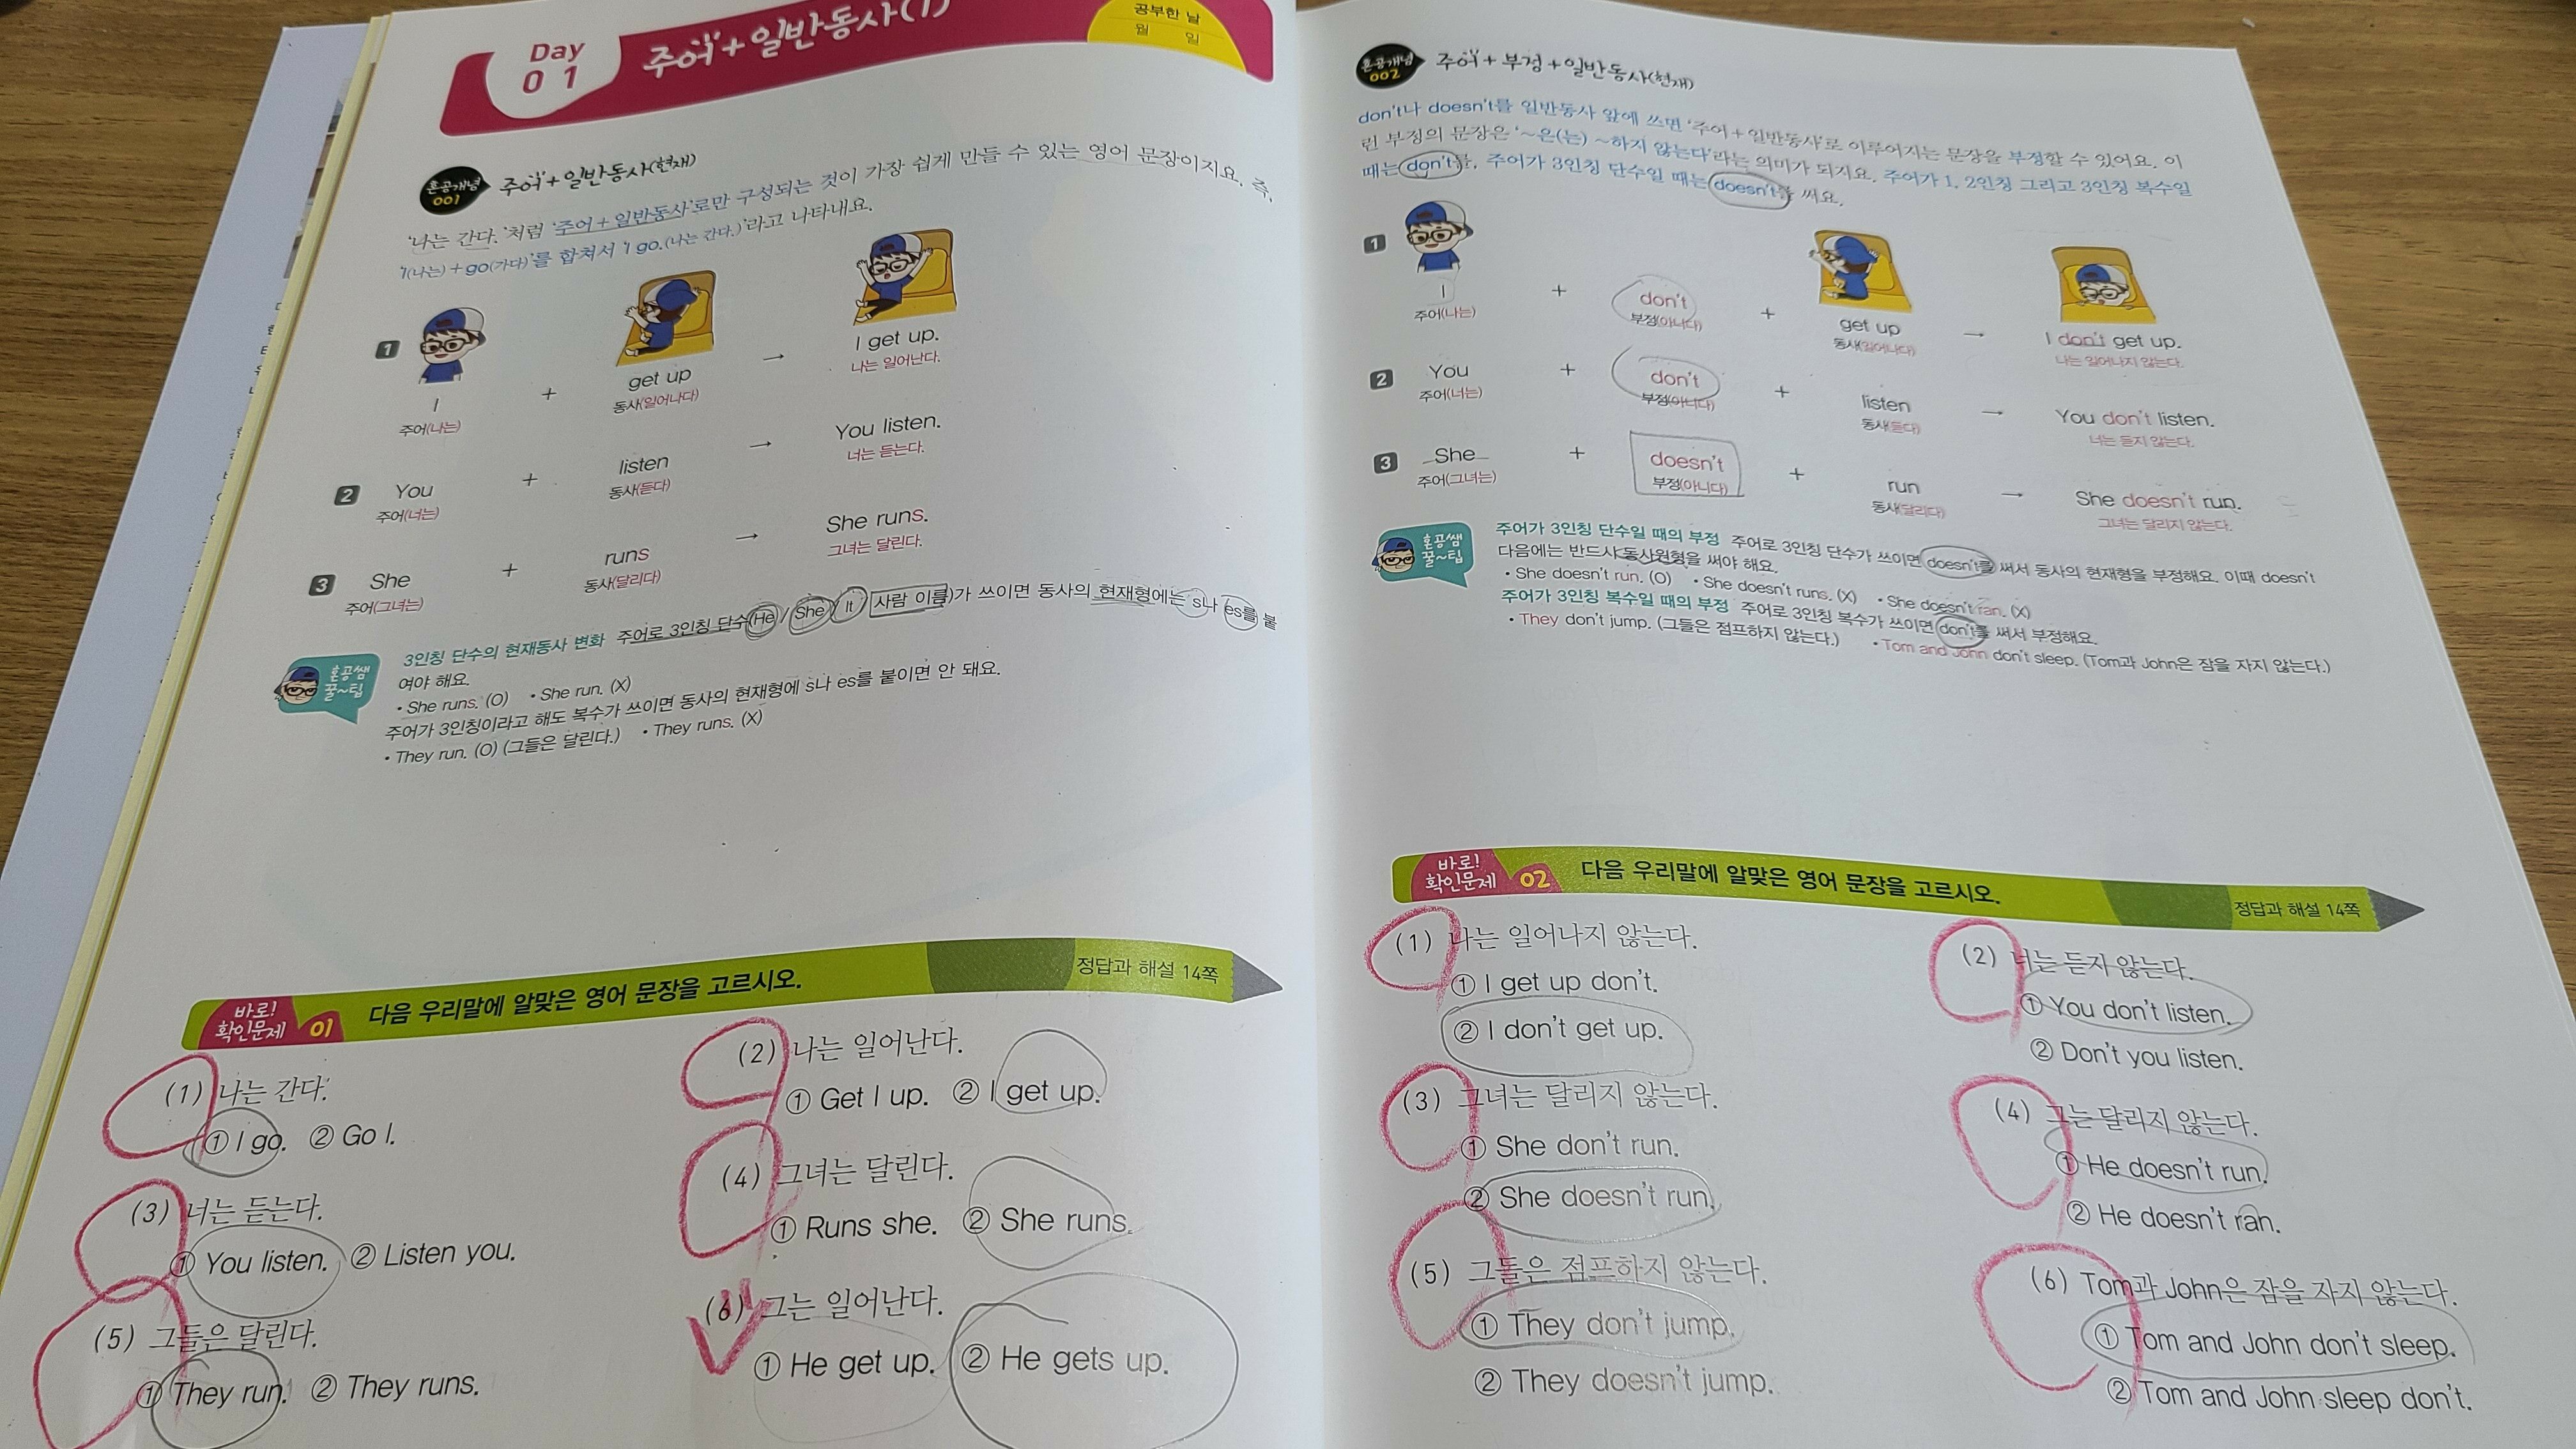 Day
01
주어+일반동사(1)
공부한 날
월 일
혼공개념
001
주어+일반동사(현재)
'나는 간다.'처럼 '주어+일반동사'로만 구성되는 것이 가장 쉽게 만들 수 있는 영어 문장이지요. 즉,
'I(나는)+go(가다)'를 합쳐서 'I go.(나는 간다.)'라고 나타내요.
1
I
주어(나는)
+
get up
동사(일어나다)
→
I get up.
나는 일어난다.
2
You
주어(너는)
+
listen
동사(듣다)
→
You listen.
너는 듣는다.
3
She
주어(그녀는)
+
runs
동사(달리다)
→
She runs.
그녀는 달린다.
혼공쌤
꿀~팁
3인칭 단수의 현재동사 변화 주어로 3인칭 단수(He / She / It / 사람 이름)가 쓰이면 동사의 현재형에는 s나 es를 붙
여야 해요.
• She runs. (O) • She run. (X)
주어가 3인칭이라고 해도 복수가 쓰이면 동사의 현재형에 s나 es를 붙이면 안 돼요.
• They run. (O) (그들은 달린다.) • They runs. (X)
바로!
확인문제 01
다음 우리말에 알맞은 영어 문장을 고르시오.
정답과 해설 14쪽
(1) 나는 간다.
① I go. ② Go I.
(2) 나는 일어난다.
① Get I up. ② I get up.
(3) 너는 듣는다.
① You listen. ② Listen you.
(4) 그녀는 달린다.
① Runs she. ② She runs.
(5) 그들은 달린다.
① They run. ② They runs.
(6) 그는 일어난다.
① He get up. ② He gets up.
혼공개념
002
주어+부정+일반동사(현재)
don't나 doesn't를 일반동사 앞에 쓰면 '주어+일반동사'로 이루어지는 문장을 부정할 수 있어요. 이
런 부정의 문장은 '~은(는) ~하지 않는다'라는 의미가 되지요. 주어가 1, 2인칭 그리고 3인칭 복수일
때는 don't를, 주어가 3인칭 단수일 때는 doesn't를 써요.
1
I
주어(나는)
+
don't
부정(아니다)
+
get up
동사(일어나다)
→
I don't get up.
나는 일어나지 않는다.
2
You
주어(너는)
+
don't
부정(아니다)
+
listen
동사(듣다)
→
You don't listen.
너는 듣지 않는다.
3
She
주어(그녀는)
+
doesn't
부정(아니다)
+
run
동사(달리다)
→
She doesn't run.
그녀는 달리지 않는다.
혼공쌤
꿀~팁
주어가 3인칭 단수일 때의 부정 주어로 3인칭 단수가 쓰이면 doesn't를 써서 동사의 현재형을 부정해요. 이때 doesn't
다음에는 반드시 동사원형을 써야 해요.
• She doesn't run. (O) • She doesn't runs. (X) • She doesn't ran. (X)
주어가 3인칭 복수일 때의 부정 주어로 3인칭 복수가 쓰이면 don't를 써서 부정해요.
• They don't jump. (그들은 점프하지 않는다.) • Tom and John don't sleep. (Tom과 John은 잠을 자지 않는다.)
바로!
확인문제 02
다음 우리말에 알맞은 영어 문장을 고르시오.
정답과 해설 14쪽
(1) 나는 일어나지 않는다.
① I get up don't.
② I don't get up.
(2) 너는 듣지 않는다.
① You don't listen.
② Don't you listen.
(3) 그녀는 달리지 않는다.
① She don't run.
② She doesn't run.
(4) 그는 달리지 않는다.
① He doesn't run.
② He doesn't ran.
(5) 그들은 점프하지 않는다.
① They don't jump.
② They doesn't jump.
(6) Tom과 John은 잠을 자지 않는다.
① Tom and John don't sleep.
② Tom and John sleep don't.